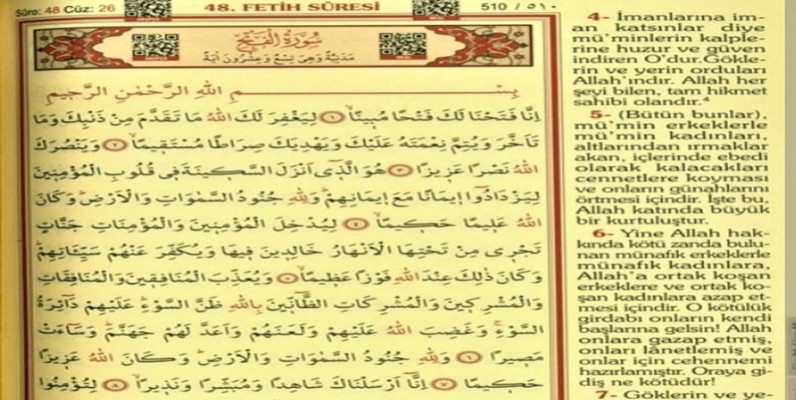 Sûre: 48 Cüz: 26
48. FETİH SÛRESİ
510 / ٥١٠
سُورَةُ الْفَتْحِ
مَدَنِيَّةٌ وَهِيَ تِسْعٌ وَعِشْرُونَ اٰيَةً
بِسْــــــــــــــــــمِ اللهِ الرَّحْمٰنِ الرَّحِيمِ
اِنَّا فَتَحْنَا لَكَ فَتْحًا مُبِينًاۙ ﴿١﴾ لِيَغْفِرَ لَكَ اللهُ مَا تَقَدَّمَ مِنْ ذَنْبِكَ وَمَا
تَاَخَّرَ وَيُتِمَّ نِعْمَتَهُ عَلَيْكَ وَيَهْدِيَكَ صِرَاطًا مُسْتَقِيمًاۙ ﴿٢﴾ وَيَنْصُرَكَ
اللهُ نَصْرًا عَزِيزًا ﴿٣﴾ هُوَ الَّذِٓي اَنْزَلَ السَّكِينَةَ فِي قُلُوبِ الْمُؤْمِنِينَ
لِيَزْدَادُٓوا اِيمَانًا مَعَ اِيمَانِهِمْۜ وَلِلّٰهِ جُنُودُ السَّمٰوَاتِ وَالْاَرْضِۜ وَكَانَ
اللهُ عَلِيمًا حَكِيمًاۙ ﴿٤﴾ لِيُدْخِلَ الْمُؤْمِنِينَ وَالْمُؤْمِنَاتِ جَنَّاتٍ
تَجْرِي مِنْ تَحْتِهَا الْاَنْهَارُ خَالِدِينَ فِيهَا وَيُكَفِّرَ عَنْهُمْ سَيِّـَٔاتِهِمْۜ
وَكَانَ ذٰلِكَ عِنْدَ اللهِ فَوْزًا عَظِيمًاۙ ﴿٥﴾ وَيُعَذِّبَ الْمُنَافِقِينَ وَالْمُنَافِقَاتِ
وَالْمُشْرِكِينَ وَالْمُشْرِكَاتِ الظَّٓانِّينَ بِاللهِ ظَنَّ السَّوْءِۜ عَلَيْهِمْ دَٓائِرَةُ
السَّوْءِۚ وَغَضِبَ اللهُ عَلَيْهِمْ وَلَعَنَهُمْ وَاَعَدَّ لَهُمْ جَهَنَّمَۜ وَسَٓاءَتْ
مَصِيرًا ﴿٦﴾ وَلِلّٰهِ جُنُودُ السَّمٰوَاتِ وَالْاَرْضِۜ وَكَانَ اللهُ عَزِيزًا
حَكِيمًا ﴿٧﴾ اِنَّٓا اَرْسَلْنَاكَ شَاهِدًا وَمُبَشِّرًا وَنَذِيرًاۙ ﴿٨﴾ لِتُؤْمِنُوا
4- İmanlarına im-
an katsınlar diye
mü'minlerin kalple-
rine huzur ve güven
indiren O'dur.Gökle-
rin ve yerin orduları
Allah'ındır. Allah her
şeyi bilen, tam hikmet
sahibi olandır.⁴
5- (Bütün bunlar),
mü'min erkeklerle
mü'min kadınları,
altlarından ırmaklar
akan, içlerinde ebedi
olarak kalacakları
cennetlere koyması
ve onların günahlarını
örtmesi içindir. İşte bu,
Allah katında büyük
bir kurtuluştur.
6- Yine Allah hak-
kında kötü zanda bulu-
nan münafık erkeklerle
münafık kadınlara,
Allah'a ortak koşan
erkeklere ve ortak ko-
şan kadınlara azap et-
mesi içindir. O kötülük
girdabı onların kendi
başlarına gelsin! Allah
onlara gazap etmiş,
onları lânetlemiş ve
onlar için cehennemi
hazırlamıştır. Oraya gi-
diş ne kötüdür!
7- Göklerin ve ye-